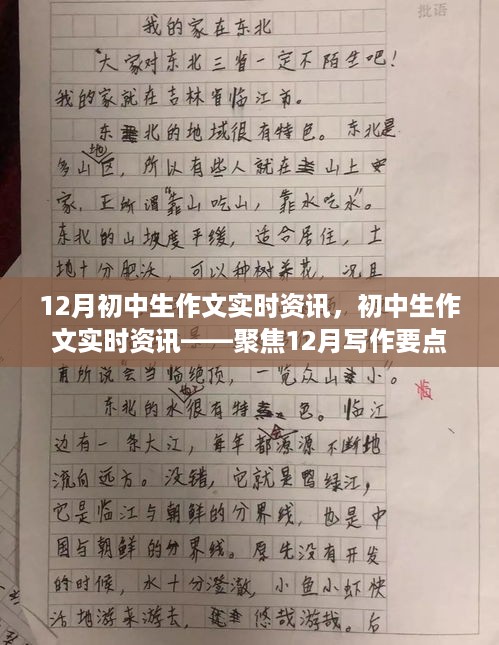 批语
我的家在东北
大家对东北三省一定不陌生吧!
我的家就在吉林省临江市。
东北的地域很有特色。东北是
多山地区,所以有些人就在山上安
家,正所谓“靠山吃山,靠水吃水”。
东北的山坡度平缓,适合居住,土
地十分肥沃,可以种树养花,况且
12月初中生作文实时资讯,初中生作
文实时资讯——聚焦12月写作要点
有所说会当临绝顶,一览众山小。”
临
东北的水很有特色。临江
边有一条大江,每年都会源源不断地
流向远方。没错,它就是鸭绿江,
它是临江与朝鲜的分界线,也是中
国与朝鲜的分界线。原先没有开发
的时候,水十分澄澈,小鱼小虾快
活地游来游去,悠哉游哉。后